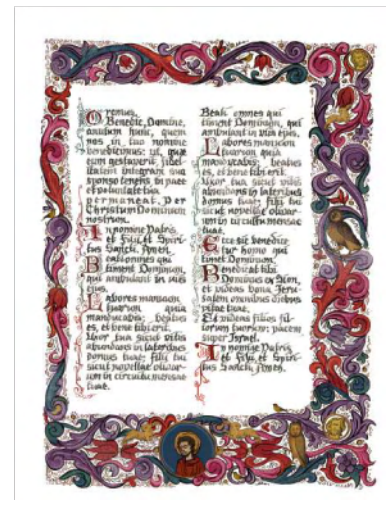 Oremus,
Benedic, Domine,
anulum hunc, quem
nos in tuo nomine
benedicimus: ut, quæ
eum gestaverit, fidel-
itatem integram suo
sponso tenens, in pace
et voluntate tua
permaneat. Per
Christum Dominum
nostrum.
In nomine Patris,
et Filii, et Spiri-
tus Sancti, Amen.
Beati omnes qui
timent Dominum,
qui ambulant in viis
ejus.
Labores manuum
tuarum quia
manducabis: beatus
es, et bene tibi erit.
Uxor tua sicut vitis
abundans in lateribus
domus tuae; filii tui
sicut novellae olivar-
um in circuitu mensae
tuae.
Beati omnes qui
timent Dominum, qui
ambulant in viis ejus.
Labores manuum
tuarum quia
manducabis: beatus
es, et bene tibi erit.
Uxor tua sicut vitis
abundans in lateribus
domus tuae; filii tui
sicut novellae olivar-
um in circuitu mensae
tuae.
Ecce sic benedice-
tur homo qui
timet Dominum.
Benedicat tibi
Dominus ex Sion,
et videas bona Jeru-
salem omnibus diebus
vitae tuae.
Et videas filios fil-
iorum tuorum: pacem
super Israel.
In nomine Patris,
et Filii, et Spiri-
tus Sancti, Amen.